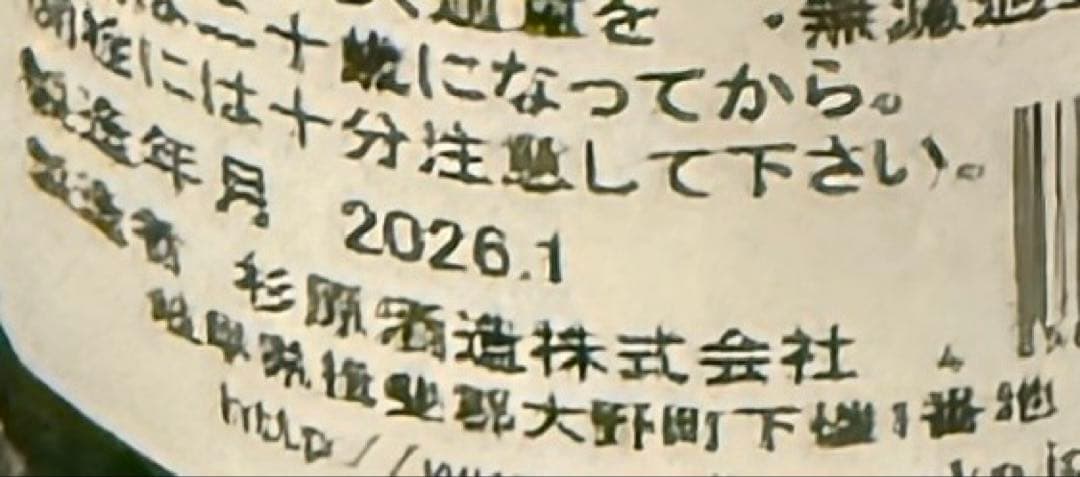 を ・無濾過
は二十歳になってから。
には十分注意して下さい。
製造年月 2026.1
製造者 杉原酒造株式会社
岐阜県揖斐郡大野町下磯1番地
http://